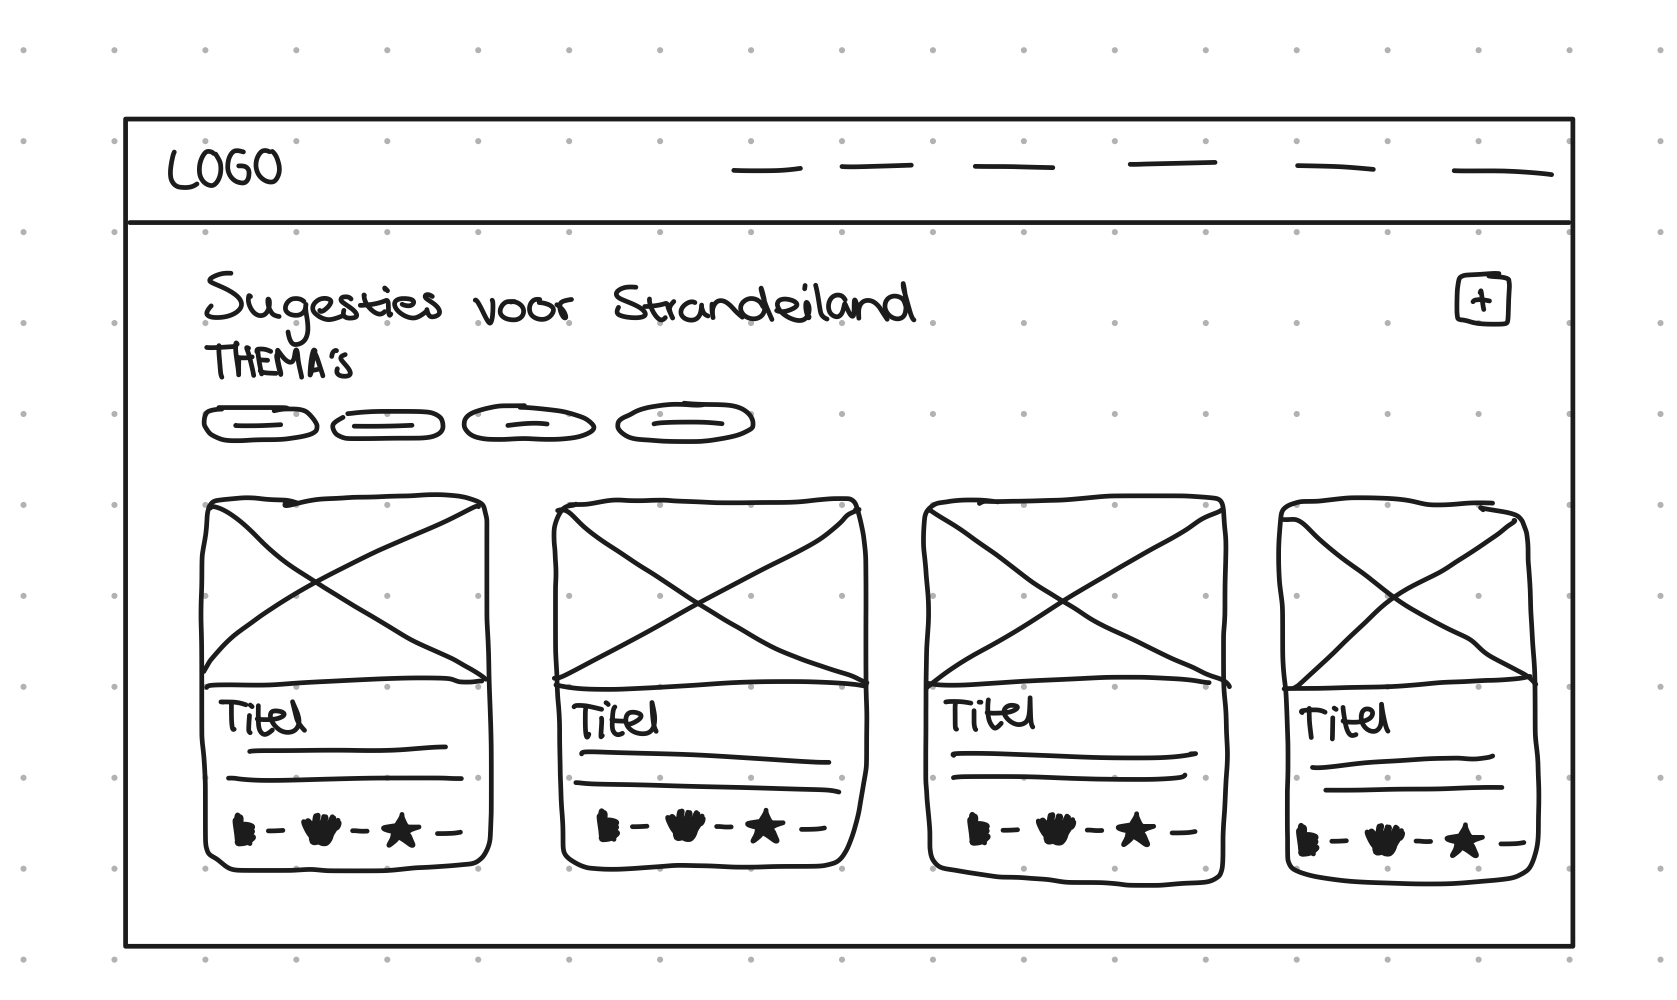 LOGO
Sugesties voor Strandeiland
+
THEMA's
Titel
Titel
Titel
Titel